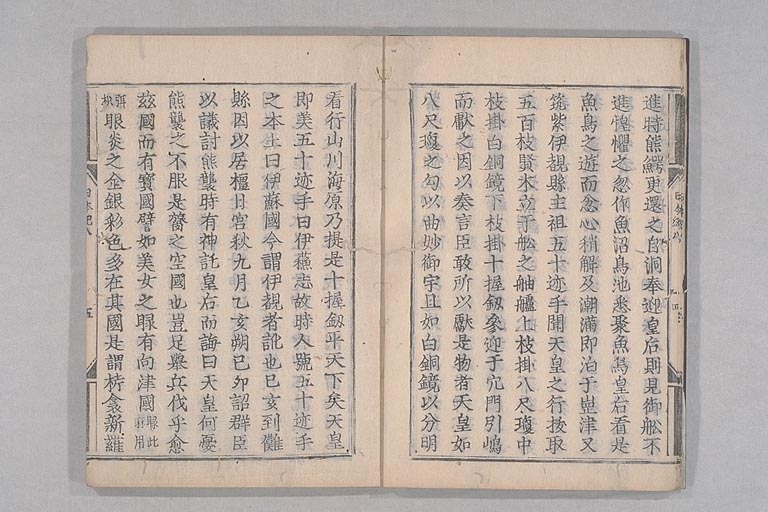 進時熊鰐更還之自洞奉迎皇后則見御舩不
進惶懼之忽作魚沼鳥池悉聚魚鳥皇后看是
魚鳥之遊而忿心稍解及潮滿即泊于崗津又
筑紫伊覩縣主祖五十迹手聞天皇之行拔取
五百枝賢木立于舩之舳艫上枝掛八尺瓊中
枝掛白銅鏡下枝掛十握釼參迎于穴門引嶋
而獻之因以奏言臣敢所以獻是物者天皇如
八尺瓊之勾以曲妙御宇且如白銅鏡以分明
看行山川海原乃提是十握釼平天下矣天皇
即美五十迹手曰伊蘓志故時人號五十迹手
之本土曰伊蘇國今謂伊覩者訛也己亥到儺
縣因以居橿日宮秋九月乙亥朔己夘詔群臣
以議討熊襲時有神託皇后而誨曰天皇何憂
熊襲之不服是膂之空國也豈足擧兵伐乎愈
玆國而有寶國譬如美女之睩有向津國睩此
眼炎之金銀彩色多在其國是謂栲衾新羅
日本紀八
五